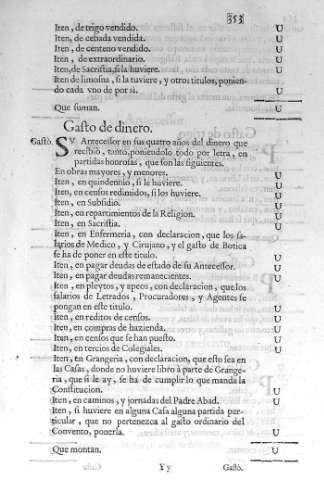 353
Iten, de trigo vendido. U
Iten, de cebada vendida. U
Iten, de centeno vendido. U
Iten, de extraordinario. U
Iten, de Sacristia, si la huviere. U
Iten de limosna, si la tuviere, y otros titulos, ponien-
do cada uno de por si. U
Que suman. U
Gasto de dinero.
Gastò. SV Antecessor en sus quatro años del dinero que
recibiò, tanto, poniendolo todo por letra, en
partidas honrosas, que son las siguientes.
En obras mayores, y menores. U
Iten, en quindennio, si le huviere. U
Iten, en censos redimidos, si los huviere. U
Iten, en Subsidio. U
Iten, en repartimientos de la Religion. U
Iten, en Sacristia. U
Iten, en Enfermeria, con declaracion, que los sa-
larios de Medico, y Cirujano, y el gasto de Botica
se ha de poner en este titulo. U
Iten, en pagar deudas de estado de su Antecessor. U
Iten, en pagar deudas remanecientes. U
Iten, en pleytos, y apeos, con declaracion, que los
salarios de Letrados, Procuradores, y Agentes se
pongan en este titulo. U
Iten, en reditos de censos. U
Iten, en compras de hazienda. U
Iten, en censos que se han puesto. U
Iten, en tercios de Colegiales. U
Iten, en Grangeria, con declaracion, que esto sea en
las Casas, donde no huviere libro à parte de Grange-
ria, que si le ay, se ha de cumplir lo que manda la
Constitucion. U
Iten, en caminos, y jornadas del Padre Abad. U
Iten, si huviere en alguna Casa alguna partida per-
ticular, que no pertenezca al gasto ordinario del
Convento, ponerla. U
Que montan. U
Yy Gastò.